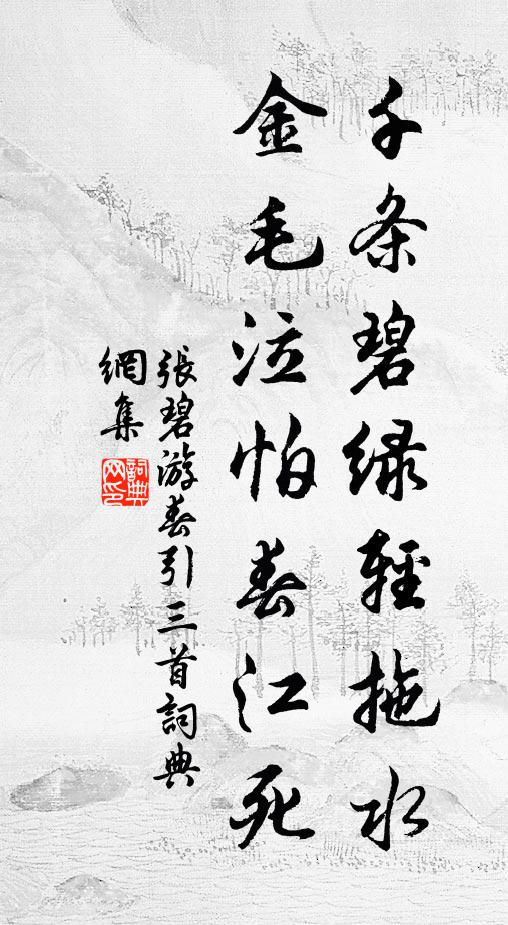 千条碧绿轻拖水
金毛泣怕春江死
張碧游春引三首詞典
網集
詞典
网印